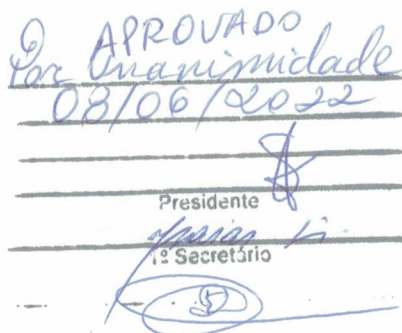 APROVADO
Por Unanimidade
08/06/2022
Presidente
1º Secretário